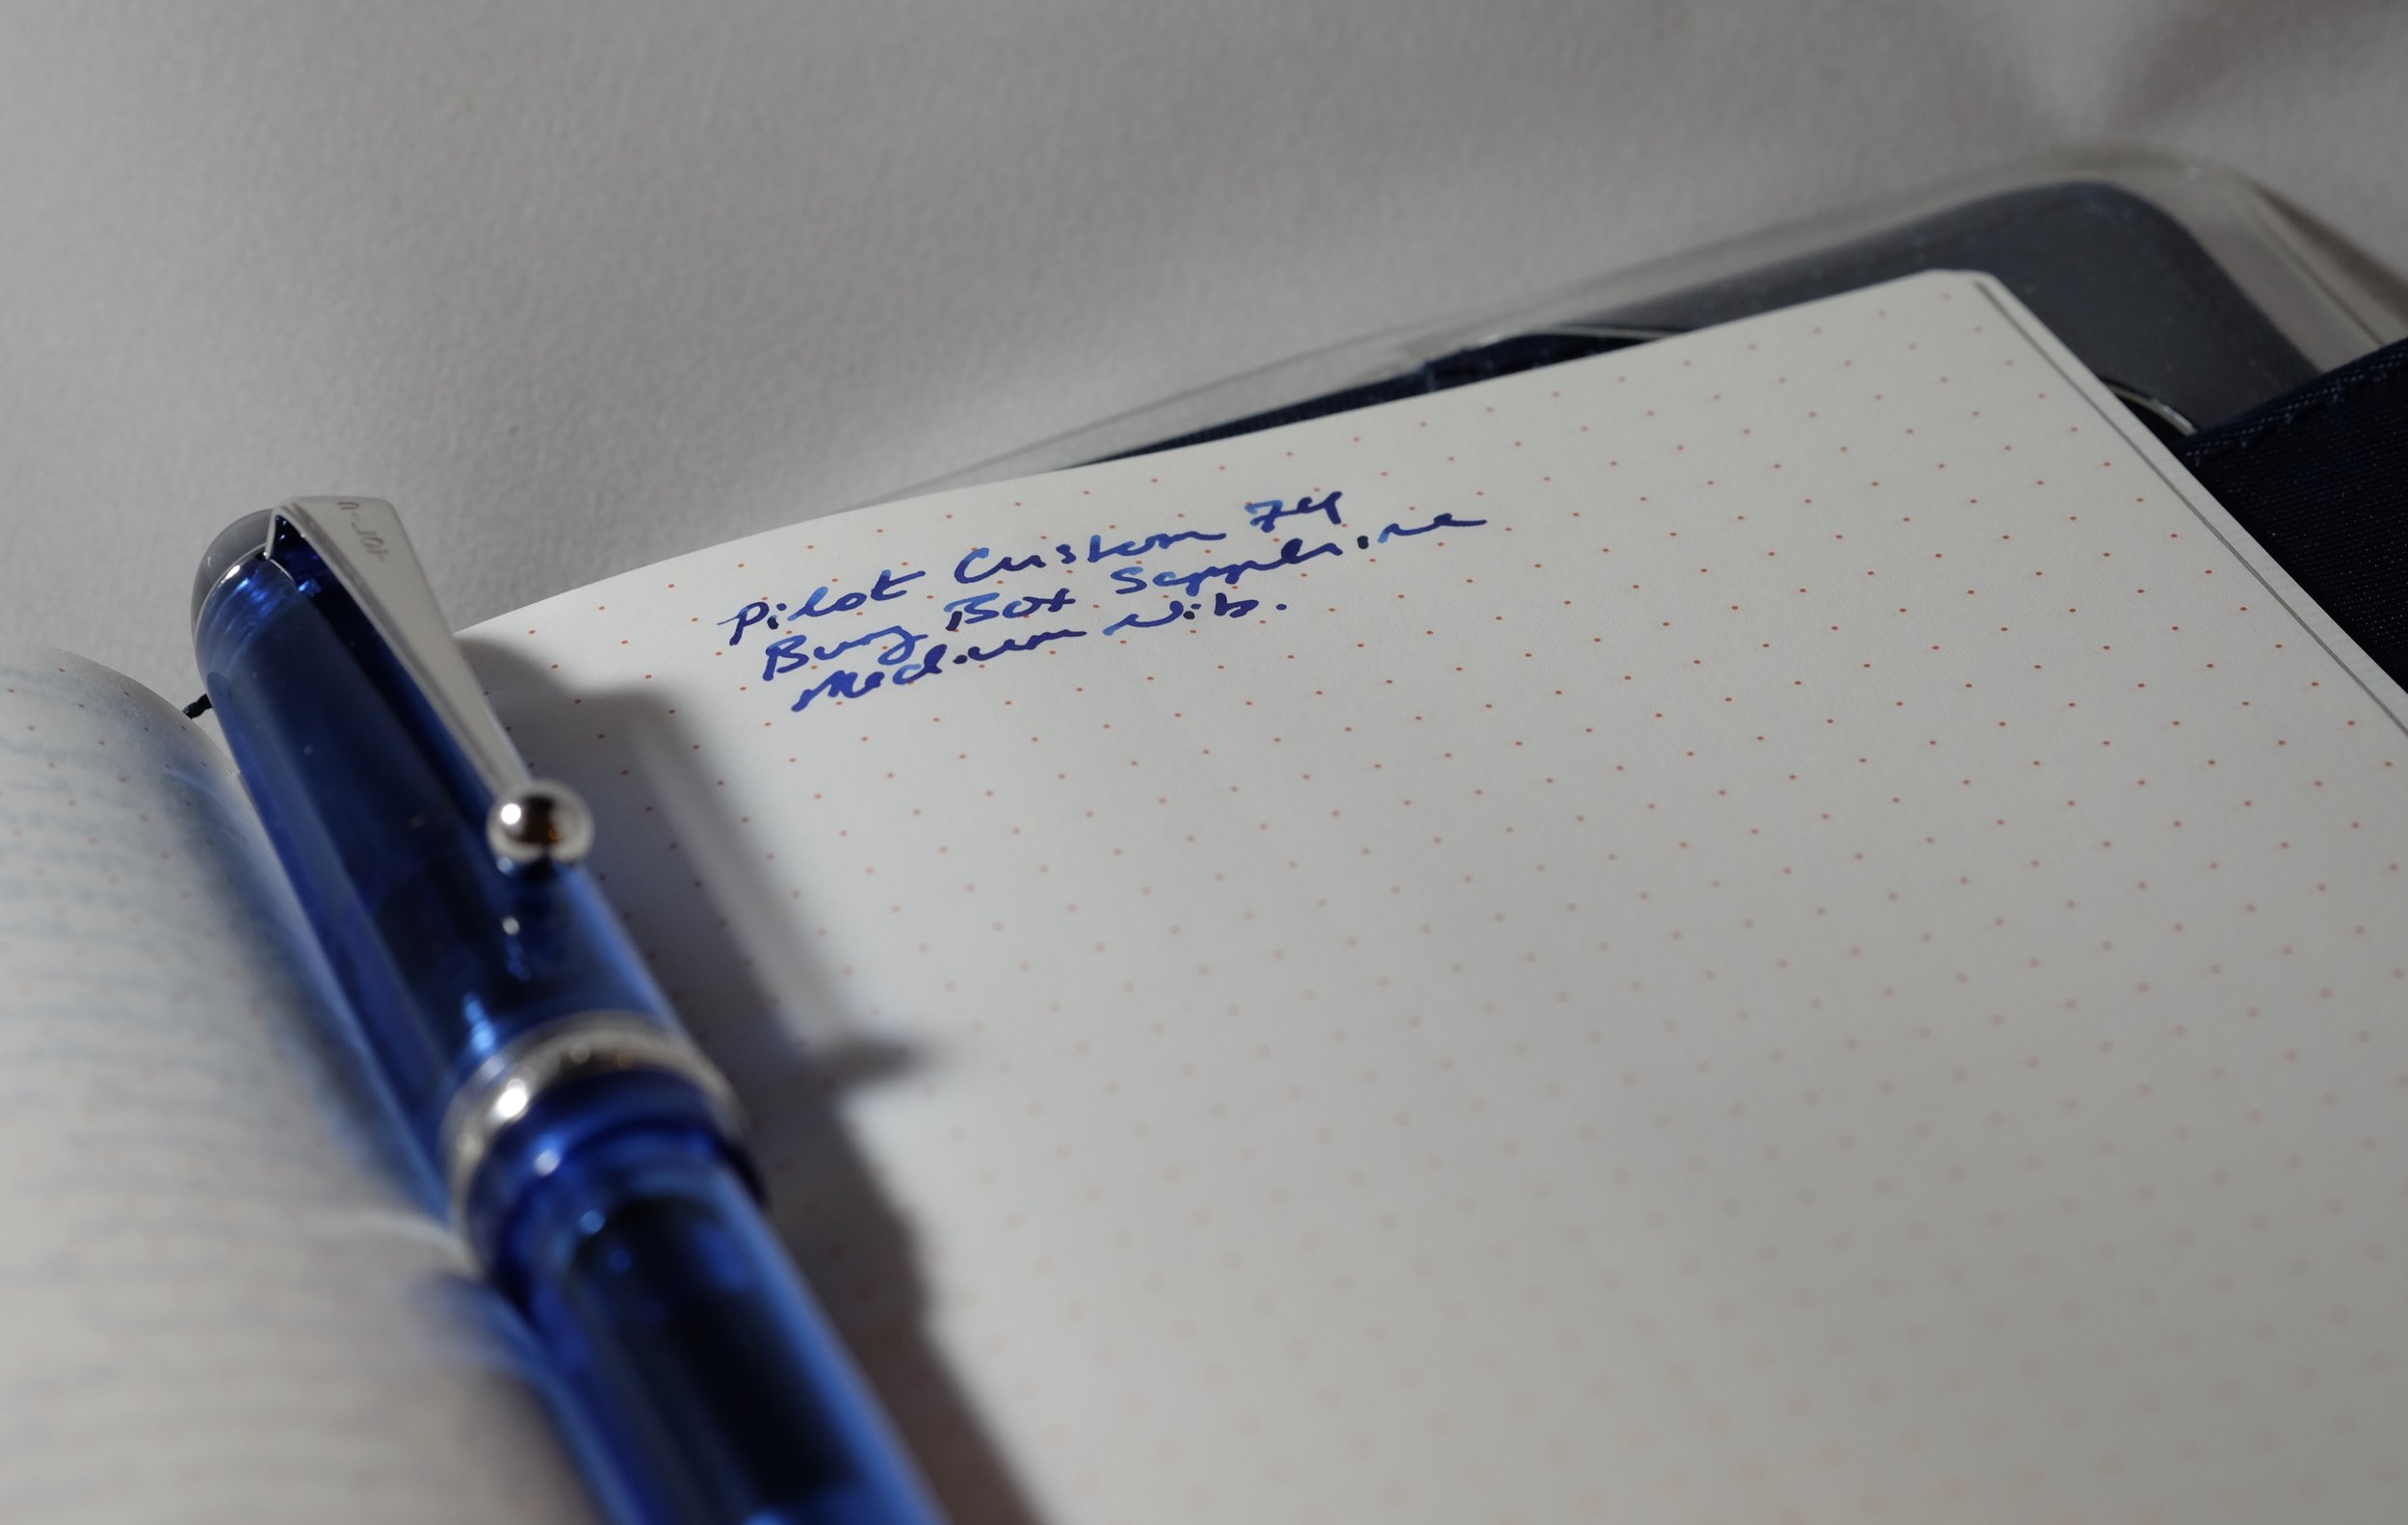 Pilot Custom 74
Bung Box Sapphire
Medium Nib.